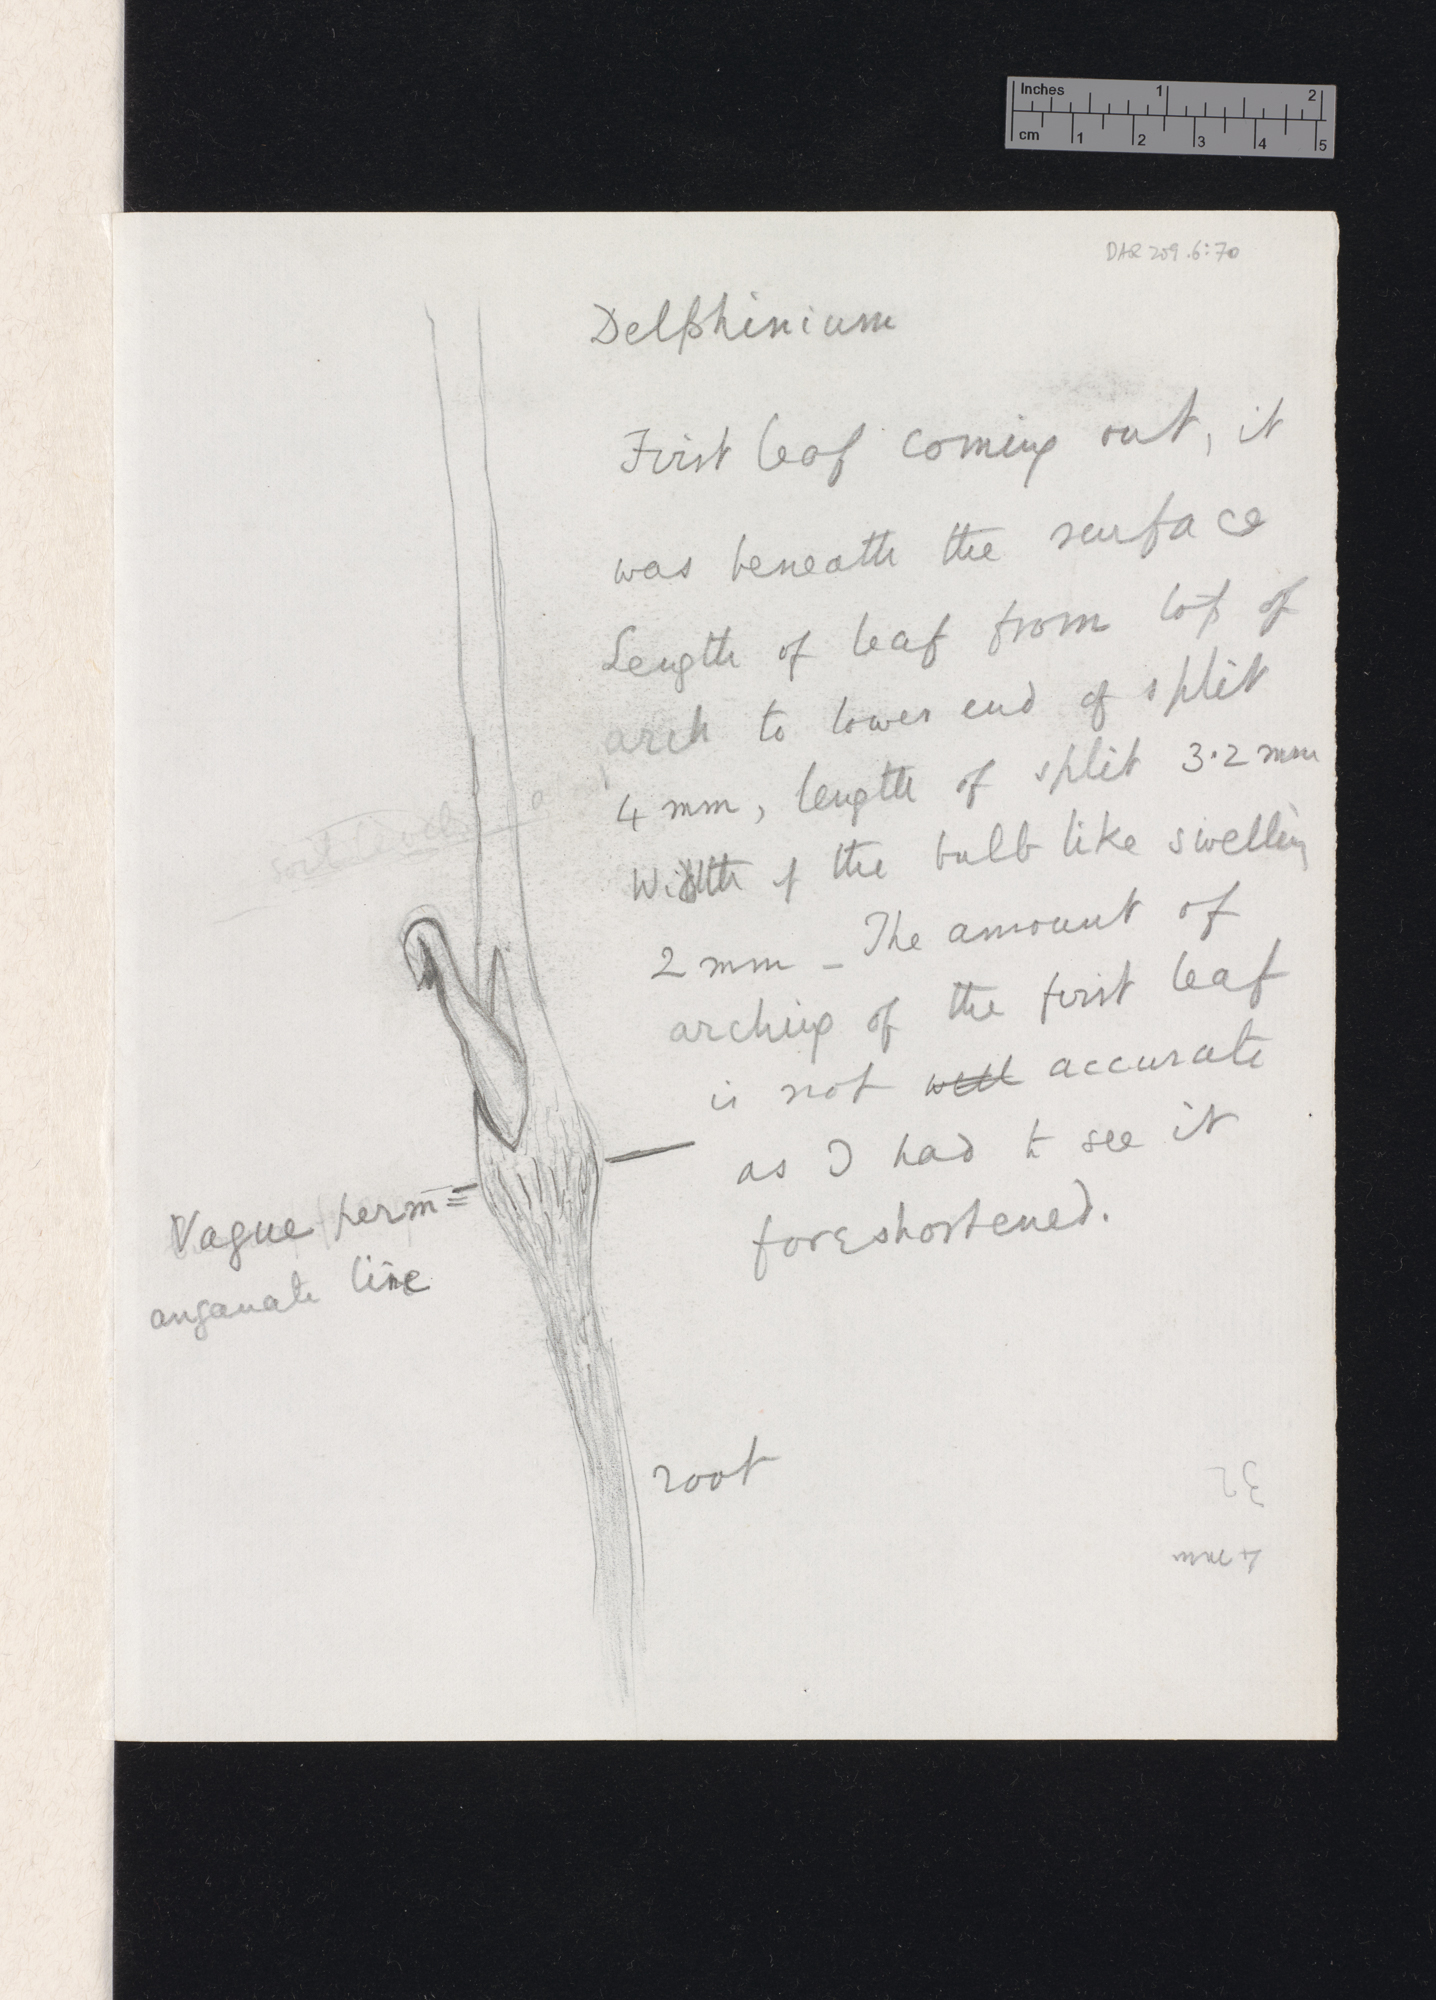 Inches 1 2
cm 1 2 3 4 5
DAR 209.6:70
Delphinium
First leaf coming out, it
was beneath the surface
Length of leaf from top of
arch to lower end of split
4 mm, length of split 3.2 mm
Width of the bulb like swelling
2 mm – The amount of
arching of the first leaf
is not well accurate
as I had to see it
foreshortened.
soil level
Vague perm=
anganate line
root
32
4 mm